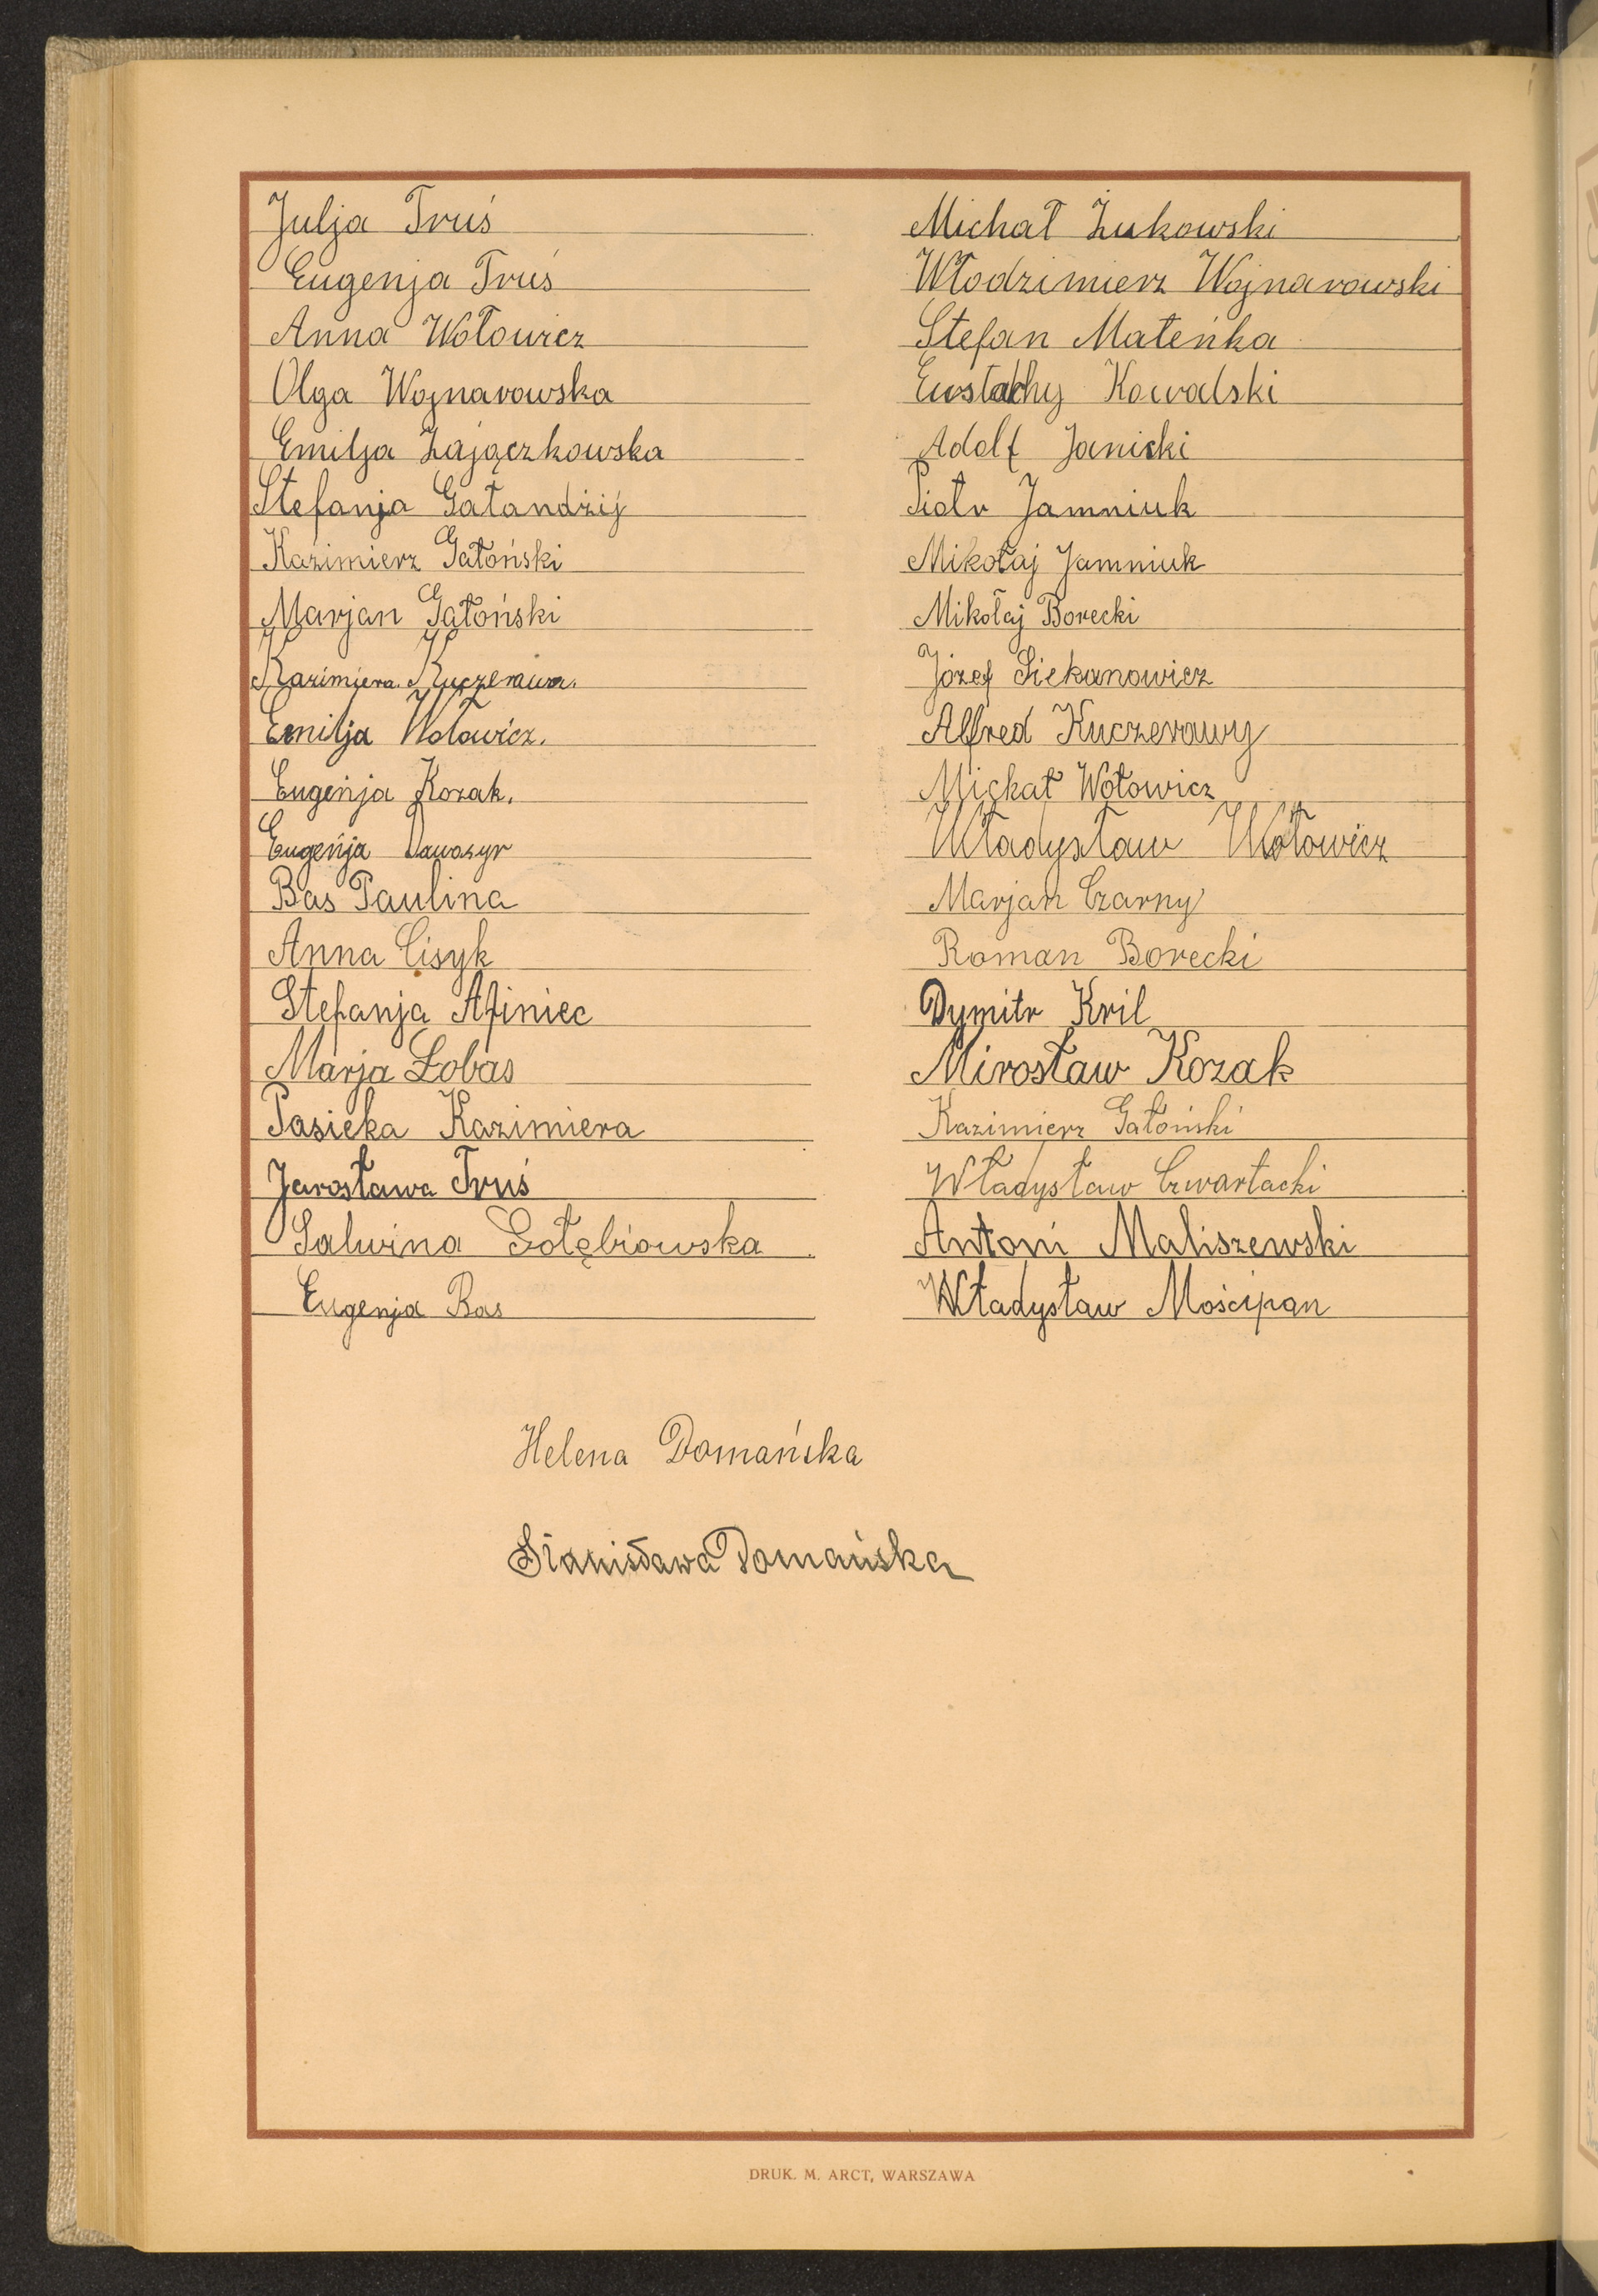 Julja Truś
Eugenja Truś
Anna Wołowicz
Olga Wojnarowska
Emilja Zajączkowska
Stefanja Gałandżij
Kazimierz Gatoński
Marjan Gatoński
Kazimiera Kuczerawa.
Emilja Wołowicz.
Eugenja Kozak.
Eugenja
Bas Paulina
Anna Cisyk
Stefanja Afiniec
Marja Łobas
Pasieka Kazimiera
Jarosława Truś
Salwina Gołębiowska
Eugenja Bas
Michał Żukowski
Włodzimierz Wojnarowski
Stefan Mateńka
Eustachy Kowalski
Adolf Janicki
Piotr Jamniuk
Mikołaj Jamniuk
Mikołaj Borecki
Józef Siekanowicz
Alfred Kuczerawy
Michał Wołowicz
Władysław Wołowicz
Marjan Czarny
Roman Borecki
Dymitr Kril
Mirosław Kozak
Kazimierz Gatoński
Władysław Czwartacki
Antoni Maliszewski
Władysław Mościpan
Helena Domańska
Stanisława Domańska
DRUK. M. ARCT, WARSZAWA